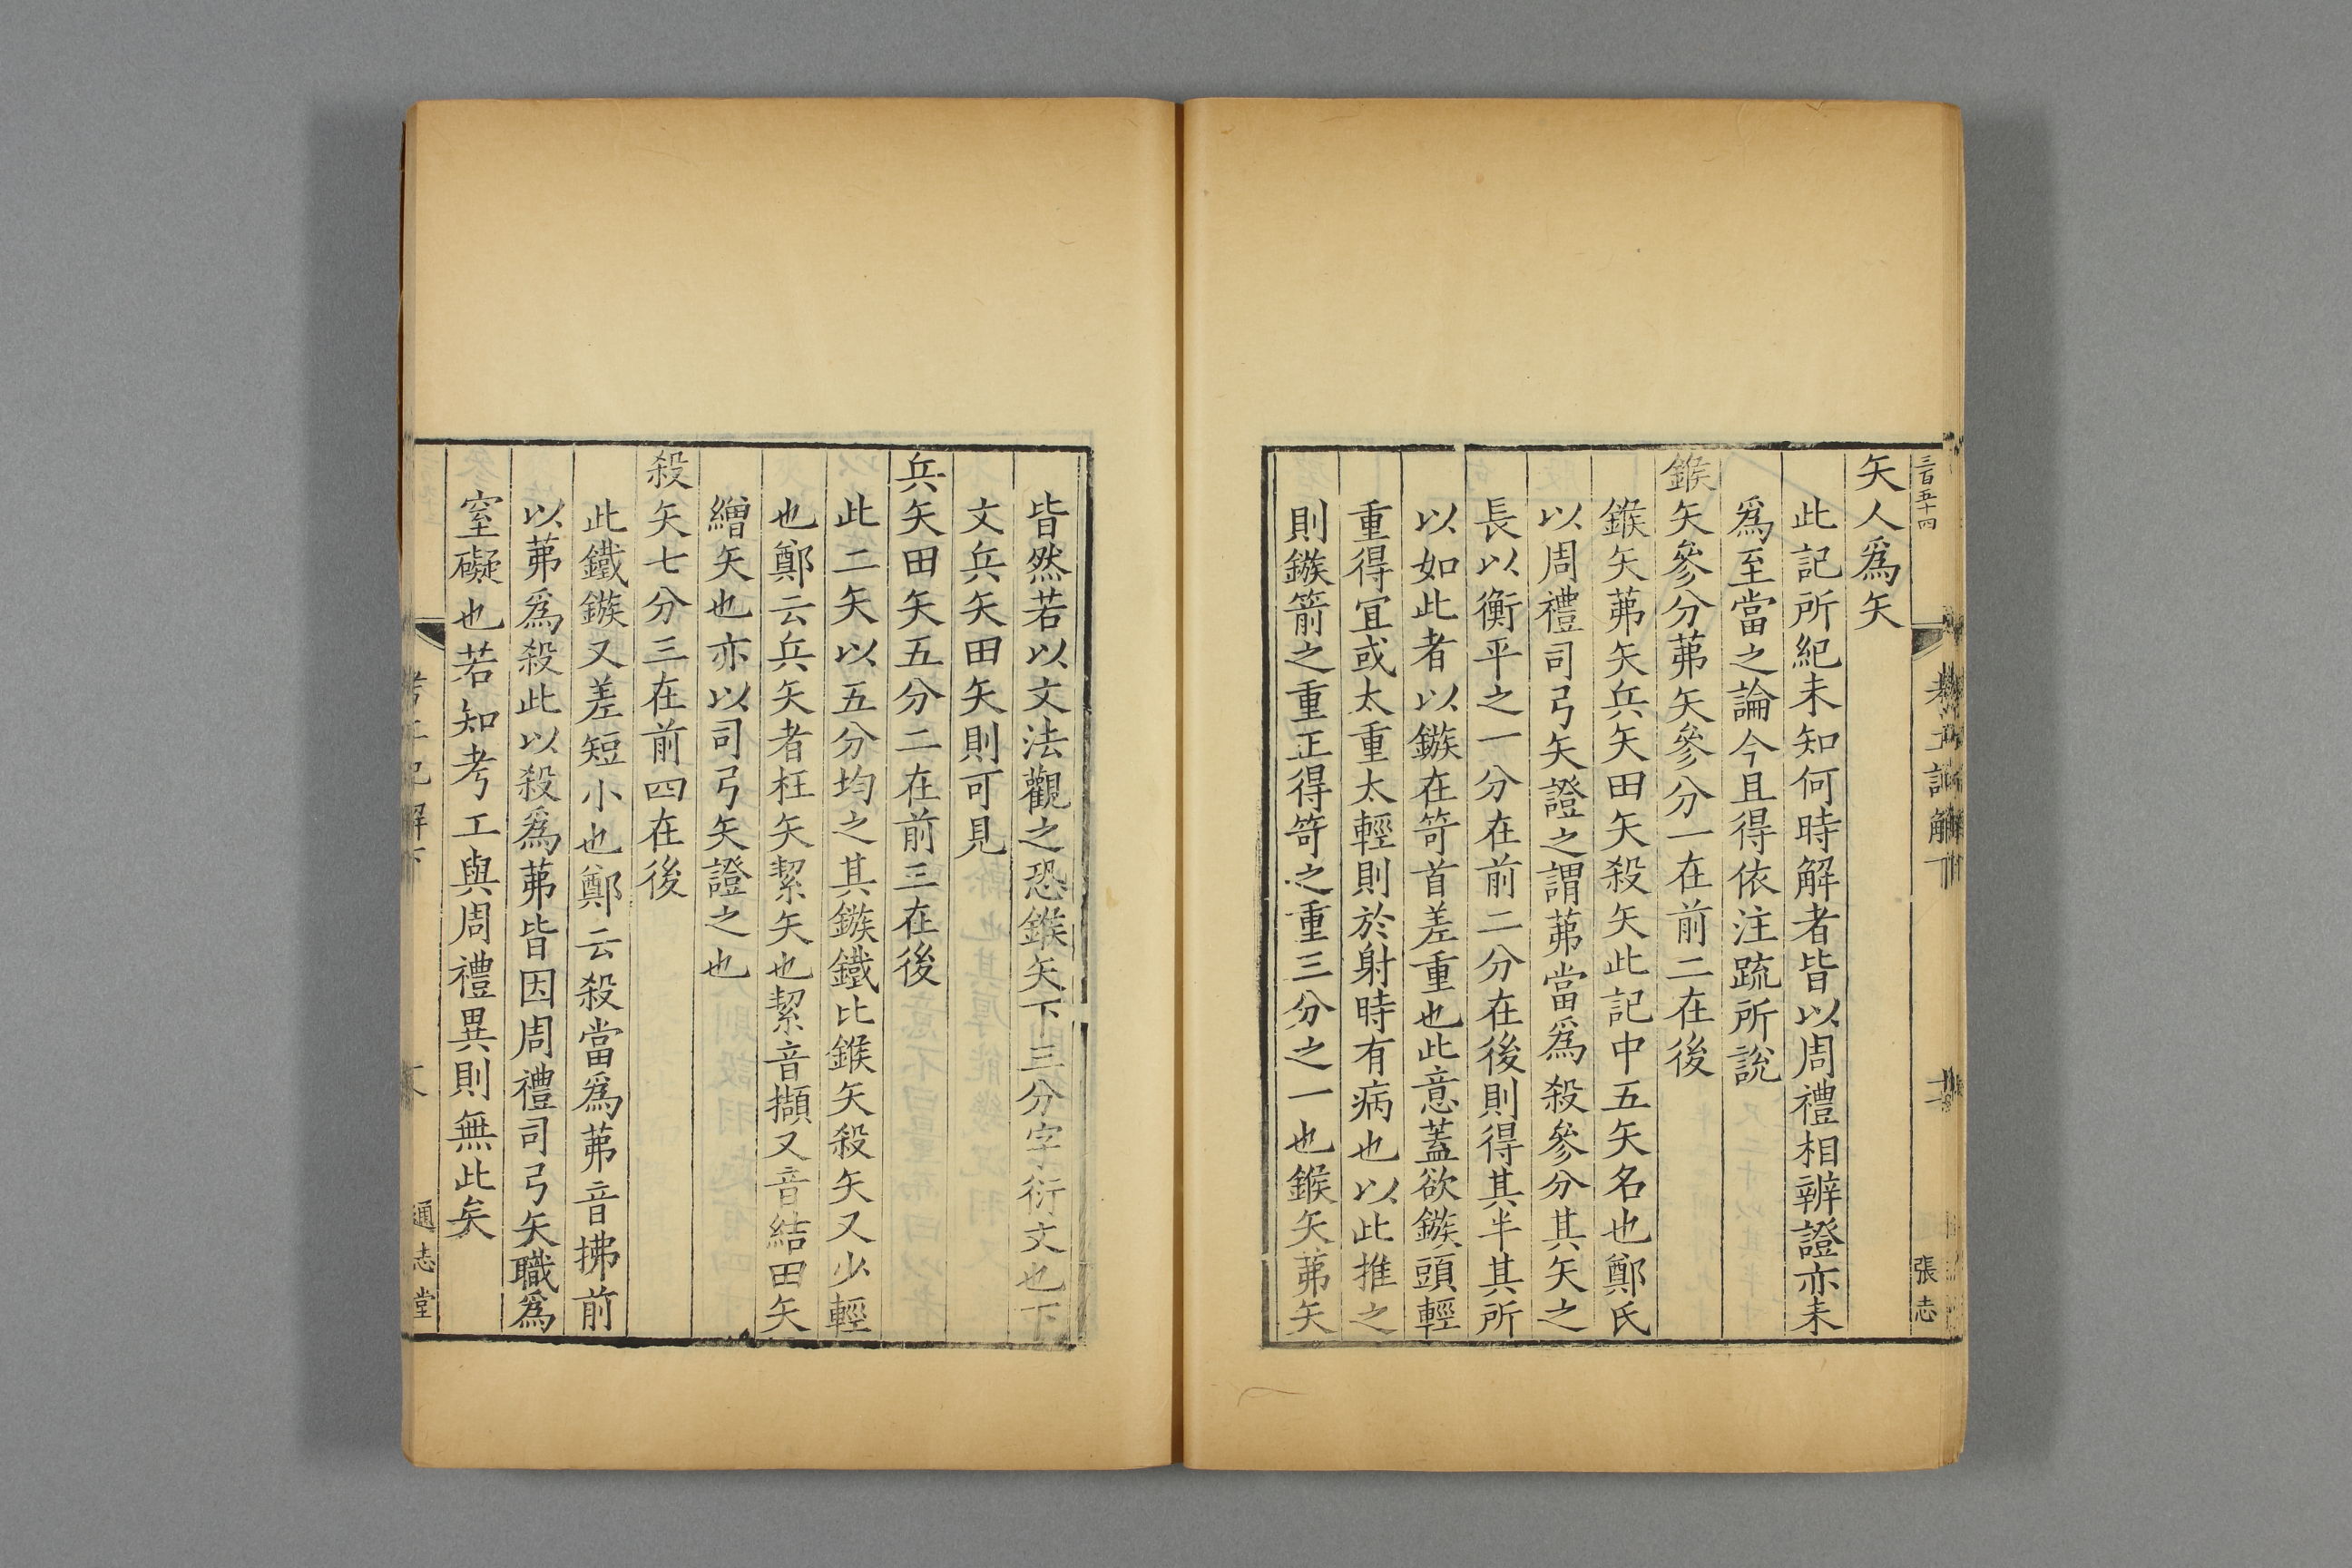 三百五十四
張志
矢人爲矢
此記所紀未知何時解者皆以周禮相辨證亦未
爲至當之論今且得依注疏所說
鍭矢參分茀矢參分一在前二在後
鍭矢茀矢兵矢田矢殺矢此記中五矢名也鄭氏
以周禮司弓矢證之謂茀當爲殺參分其矢之
長以衡平之一分在前二分在後則得其半其所
以如此者以鏃在笴首差重也此意蓋欲鏃頭輕
重得宜或太重太輕則於射時有病也以此推之
則鏃箭之重正得笴之重三分之一也鍭矢茀矢
皆然若以文法觀之恐鍭矢下三分字衍文也下
文兵矢田矢則可見
兵矢田矢五分二在前三在後
此二矢以五分均之其鏃鐵比鍭矢殺矢又少輕
也鄭云兵矢者枉矢絜矢也絜音擷又音結田矢
繒矢也亦以司弓矢證之也
殺矢七分三在前四在後
此鐵鏃又差短小也鄭云殺當爲茀音拂前
以茀爲殺此以殺爲茀皆因周禮司弓矢職爲
窒礙也若知考工與周禮異則無此矣
通志堂